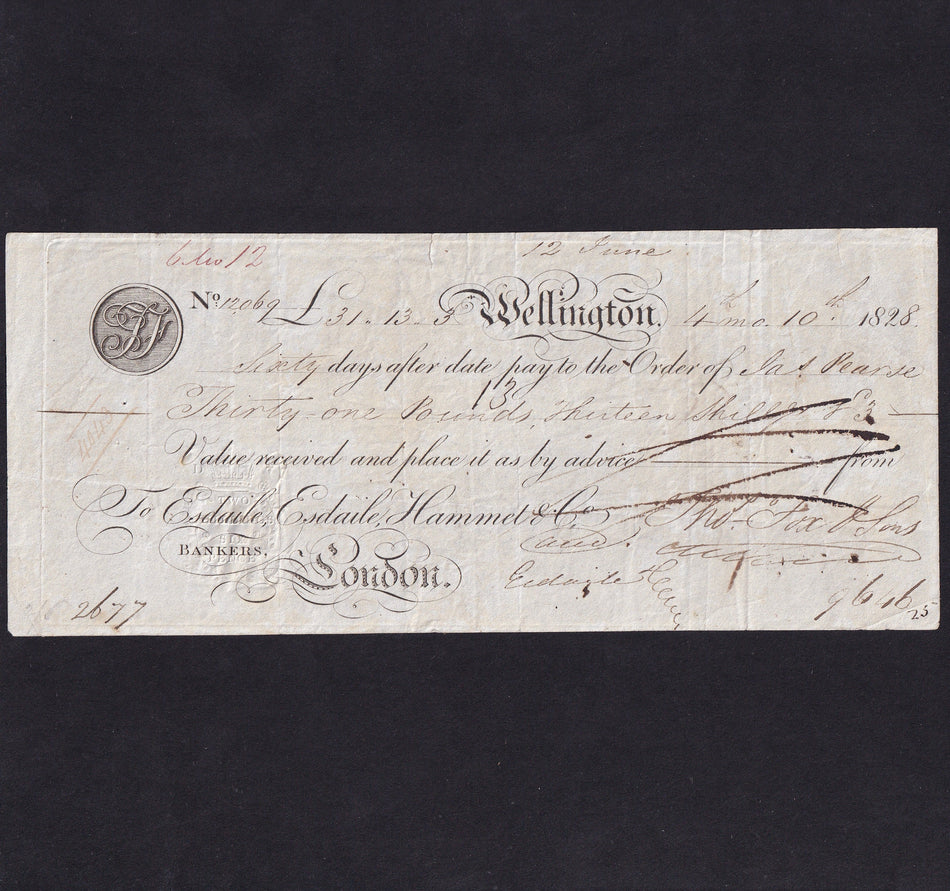 12 June
TF
No. 12,069 £31..13..3 Wellington. 4th mo. 10th 1828.
Sixty days after date pay to the Order of Jas Pearse
13
Thirty-one Pounds, Thirteen Shillgs & 3
Value received and place it as by advice from
To Esdaile, Esdaile, Hammet & Co. Thos Fox & Sons
BANKERS,
London.
2677 9646
25